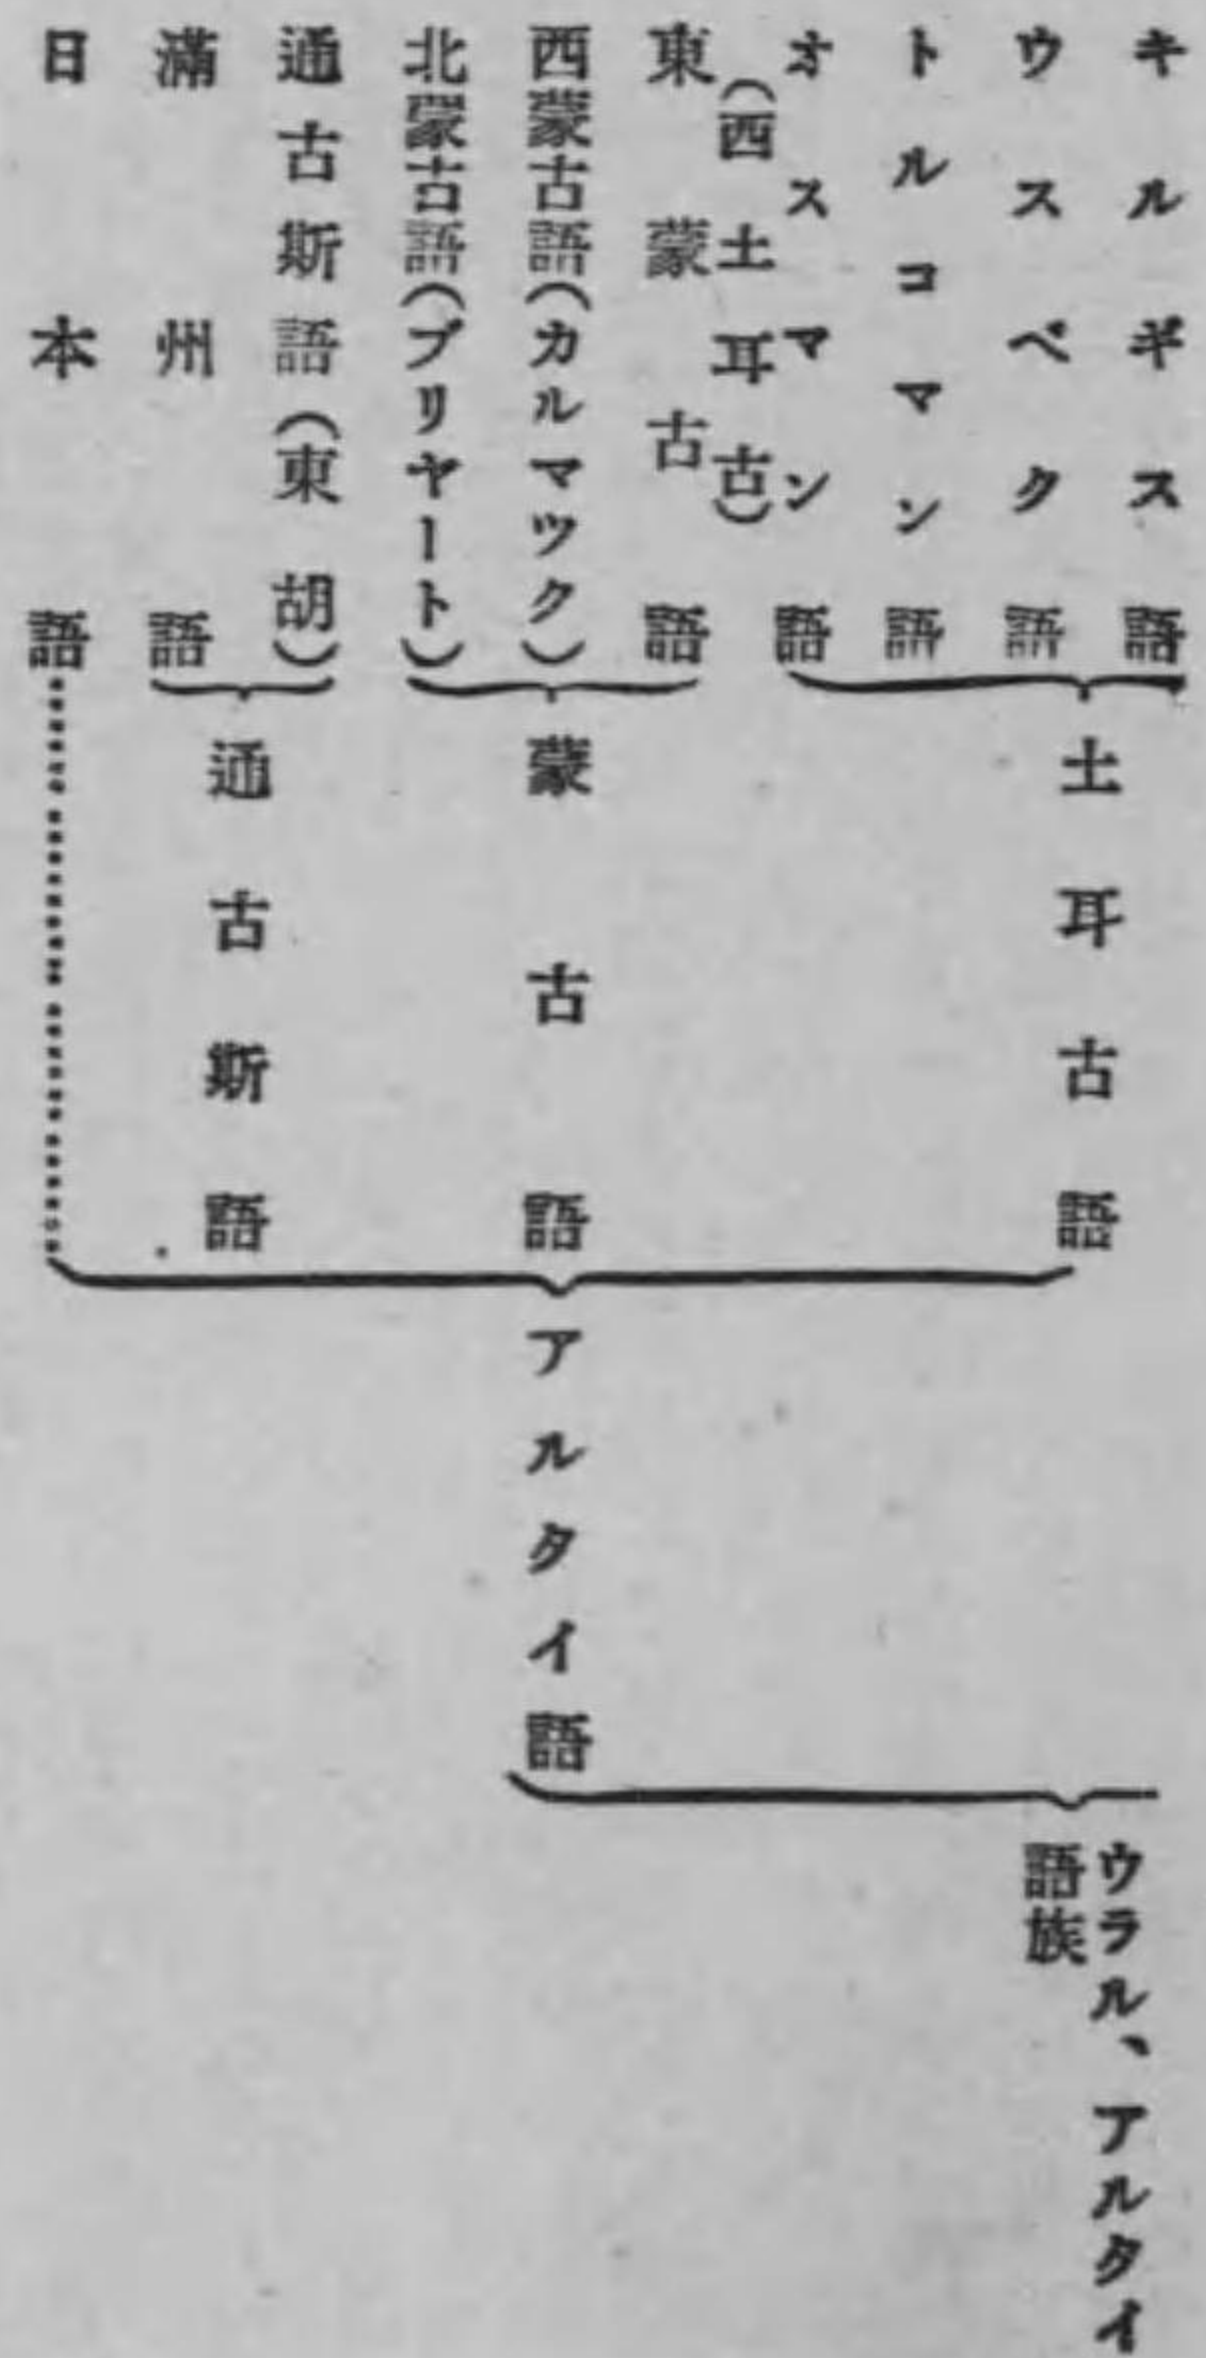 キルギス語
ウスベク語
トルコマン語
オスマン語
(西土耳古)
東蒙古語
西蒙古語(カルマツク)
北蒙古語(ブリヤート)
通古斯語(東胡)
滿州語
日本語
土耳古語
蒙古語
通古斯語
アルタイ語
ウラル、アルタイ
語族